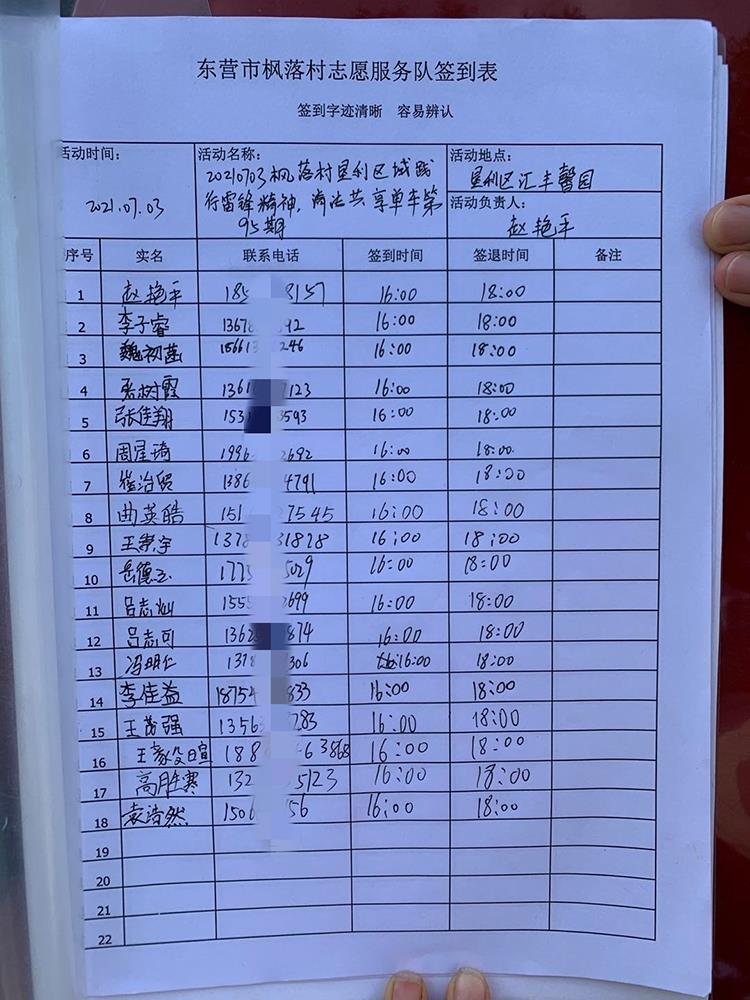 东营市枫落村志愿服务队签到表
签到字迹清晰 容易辨认
活动时间： 2021.07.03
活动名称： 20210703枫落村垦利区域践
行雷锋精神，清洁共享单车第
95期
活动地点： 垦利区汇丰馨园
活动负责人： 赵艳平
序号 实名 联系电话 签到时间 签退时间 备注
1 赵艳平 185 8157 16:00 18:00
2 李子睿 1367 92 16:00 18:00
3 魏初菡 15661 246 16:00 18:00
4 树霞 1361 123 16:00 18:00
5 张佳翔 153 3593 16:00 18:00
6 周星琦 199 2692 16:00 18:00
7 138 4791 16:00 18:00
8 曲英皓 151 7545 16:00 18:00
9 王宇 1378 31828 16:00 18:00
10 岳德玉 1775 5029 16:00 18:00
11 吕志灿 1555 2699 16:00 18:00
12 吕志可 1362 874 16:00 18:00
13 冯明仁 1378 306 16:00 18:00
14 李佳益 18754 833 16:00 18:00
15 王茂强 1356 7283 16:00 18:00
16 王 暄 188 63868 16:00 18:00
17 高胜寒 132 5123 16:00 18:00
18 袁浩然 1506 56 16:00 18:00
19
20
21
22